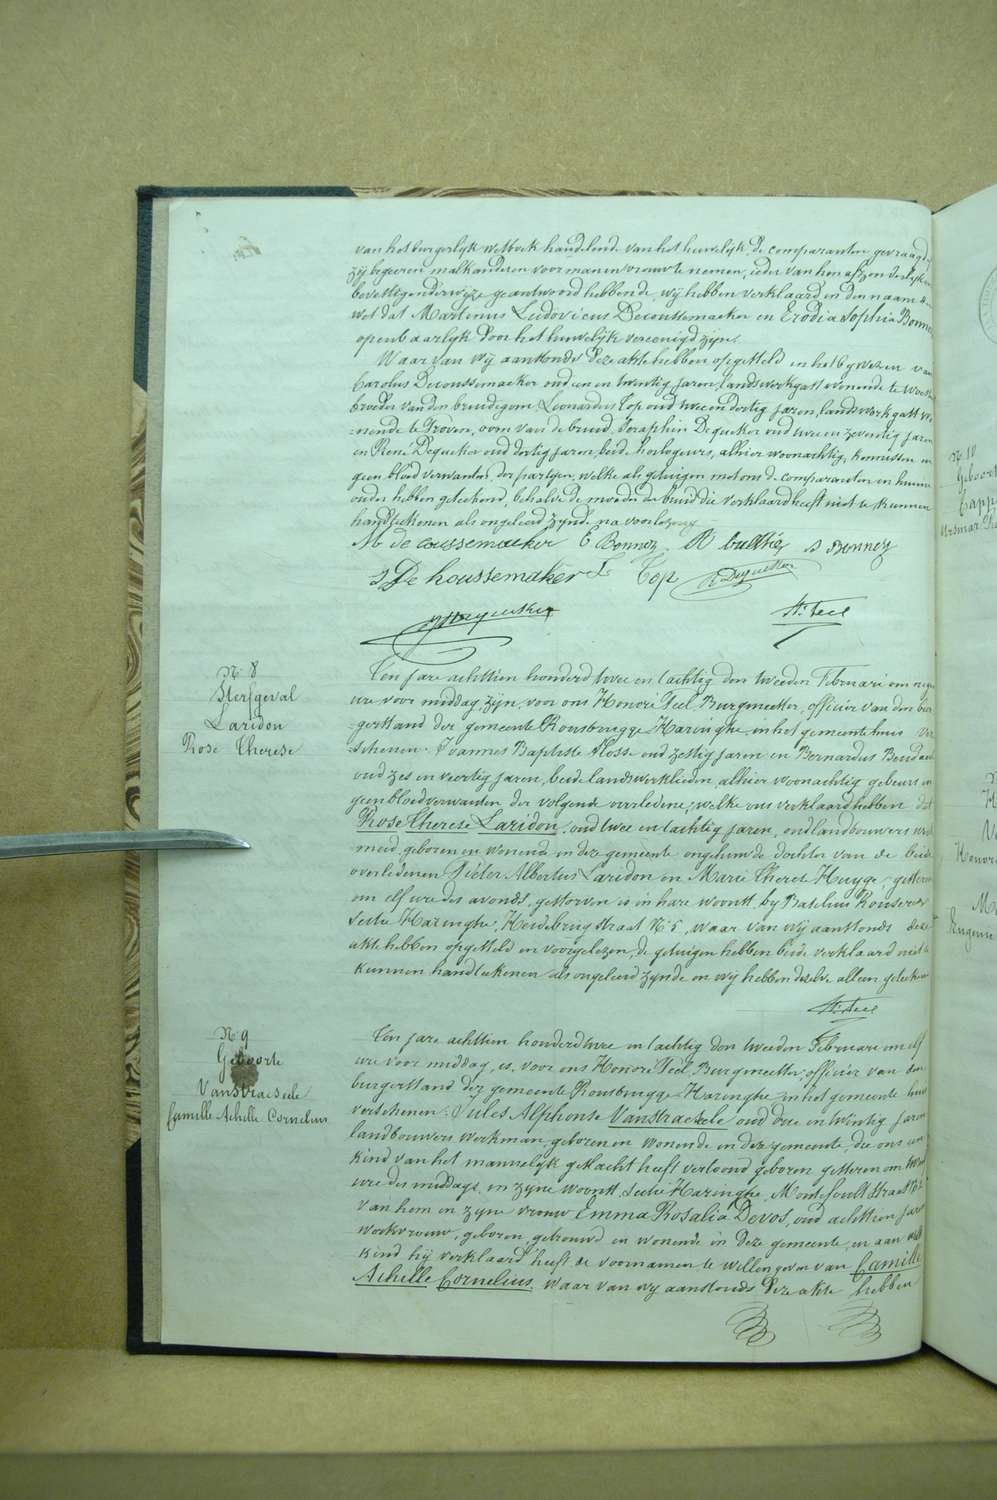 van het burgerlyk wetboek handelend van het huwelyk, de comparanten gevraagd of
zy begeeren malkanderen voor man en vrouw te nemen, ieder van hen afzonderlyk en
bevestigenderwyze geantwoord hebbende, wy hebben verklaard in den naam der
wet dat Martinus Ludovicus Decoussemaeker en Erodia Sophia Bonnez
openbaarlyk door het huwelyk vereenigd zyn.
Waar van wy aanstonds deze akte hebben opgesteld in het bywezen van
Carolus Decoussemaeker oud een en twintig jaren, landswerkgast wonende te
broeder van den bruidegom, Leonardus Top oud twee en dertig jaren, landswerkgast wo
nende te Proven, oom van de bruid, Seraphin Dequeker oud twee en zeventig jaren
en René Dequeker oud dertig jaren, beide horlogeurs, alhier woonachtig, kennissen en
geen bloedverwanten der partyen, welke als getuigen met ons de comparanten en hunne
ouders hebben geteekend, behalve de moeder der bruid die verklaard heeft niet te kunnen
handteekenen als ongeleerd zynde, na voorlezing
M de coussemaeker E Bonnez R S Bonnez
De houssemaker L Top R Dequeker
Dequeker H. Feel
N. 8
Sterfgeval
Laridon
Rose Therese
Ten jare achttien honderd twee en tachtig den tweeden Februari om negen
ure voor middag zyn, voor ons Honoré Feel, Burgmeester, officier van den bur
gerstand der gemeente Rousbrugge Haringhe, in het gemeentehuis ver
schenen: Joannes Baptiste Hosse oud zestig jaren en Bernardus
oud zes en veertig jaren, beide landswerklieden, alhier woonachtig geburs en
geen bloedverwanten der volgende overledene, welke ons verklaard hebben dat
Rose Therese Laridon, oud twee en tachtig jaren, oud landbouwers werk
meid, geboren en wonende in deze gemeente ongehuwde dochter van de beide
overledenen Pieter Albertus Laridon en Marie Therese Huyge, gisteren
om elf ure des avonds, gestorven is in hare woonst, by Basilius Rouseré
sectie Haringhe, Heidebrugstraat N. 5, waar van wy aanstonds deze
akte hebben opgesteld en voorgelezen, de getuigen hebben beide verklaard niet te
kunnen handteekenen als ongeleerd zynde en wy hebben dezelve alleen geteekend
H. Feel
N. 9
Geboorte
Vanstraeseele
Camille Achille Cornelius
Ten jare achttien honderd twee en tachtig den tweeden Februari om elf
ure voor middag, is, voor ons Honoré Feel, Burgmeester, officier van den
burgerstand der gemeente Rousbrugge Haringhe, in het gemeente huis
verschenen: Jules Alphonse Vanstraeseele oud drie en twintig jaren
landbouwers werkman, geboren en wonende in deze gemeente, die ons een
kind van het mannelyk geslacht heeft vertoond geboren gisteren om twee
ure des middags, in zyne woonst, sectie Haringhe,
van hem en zyne vrouw Emma Rosalia Devos, oud achttien jaren
werkvrouw, geboren, getrouwd en wonende in deze gemeente, en aan welk
kind hy verklaard heeft de voornamen te willen geven van Camille
Achille Cornelius, waar van wy aanstonds deze akte hebben
N. 10
Geboorte